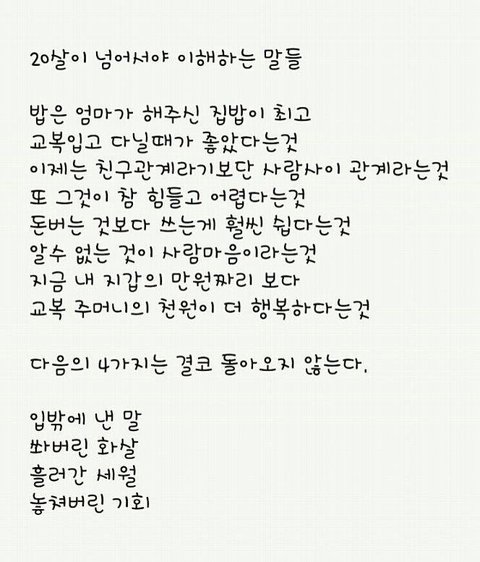 20살이 넘어서야 이해하는 말들
밥은 엄마가 해주신 집밥이 최고
교복입고 다닐때가 좋았다는것
이제는 친구관계라기보단 사람사이 관계라는것
또 그것이 참 힘들고 어렵다는것
돈버는 것보다 쓰는게 훨씬 쉽다는것
알수 없는 것이 사람마음이라는것
지금 내 지갑의 만원짜리 보다
교복 주머니의 천원이 더 행복하다는것
다음의 4가지는 결코 돌아오지 않는다.
입밖에 낸 말
쏴버린 화살
흘러간 세월
놓쳐버린 기회